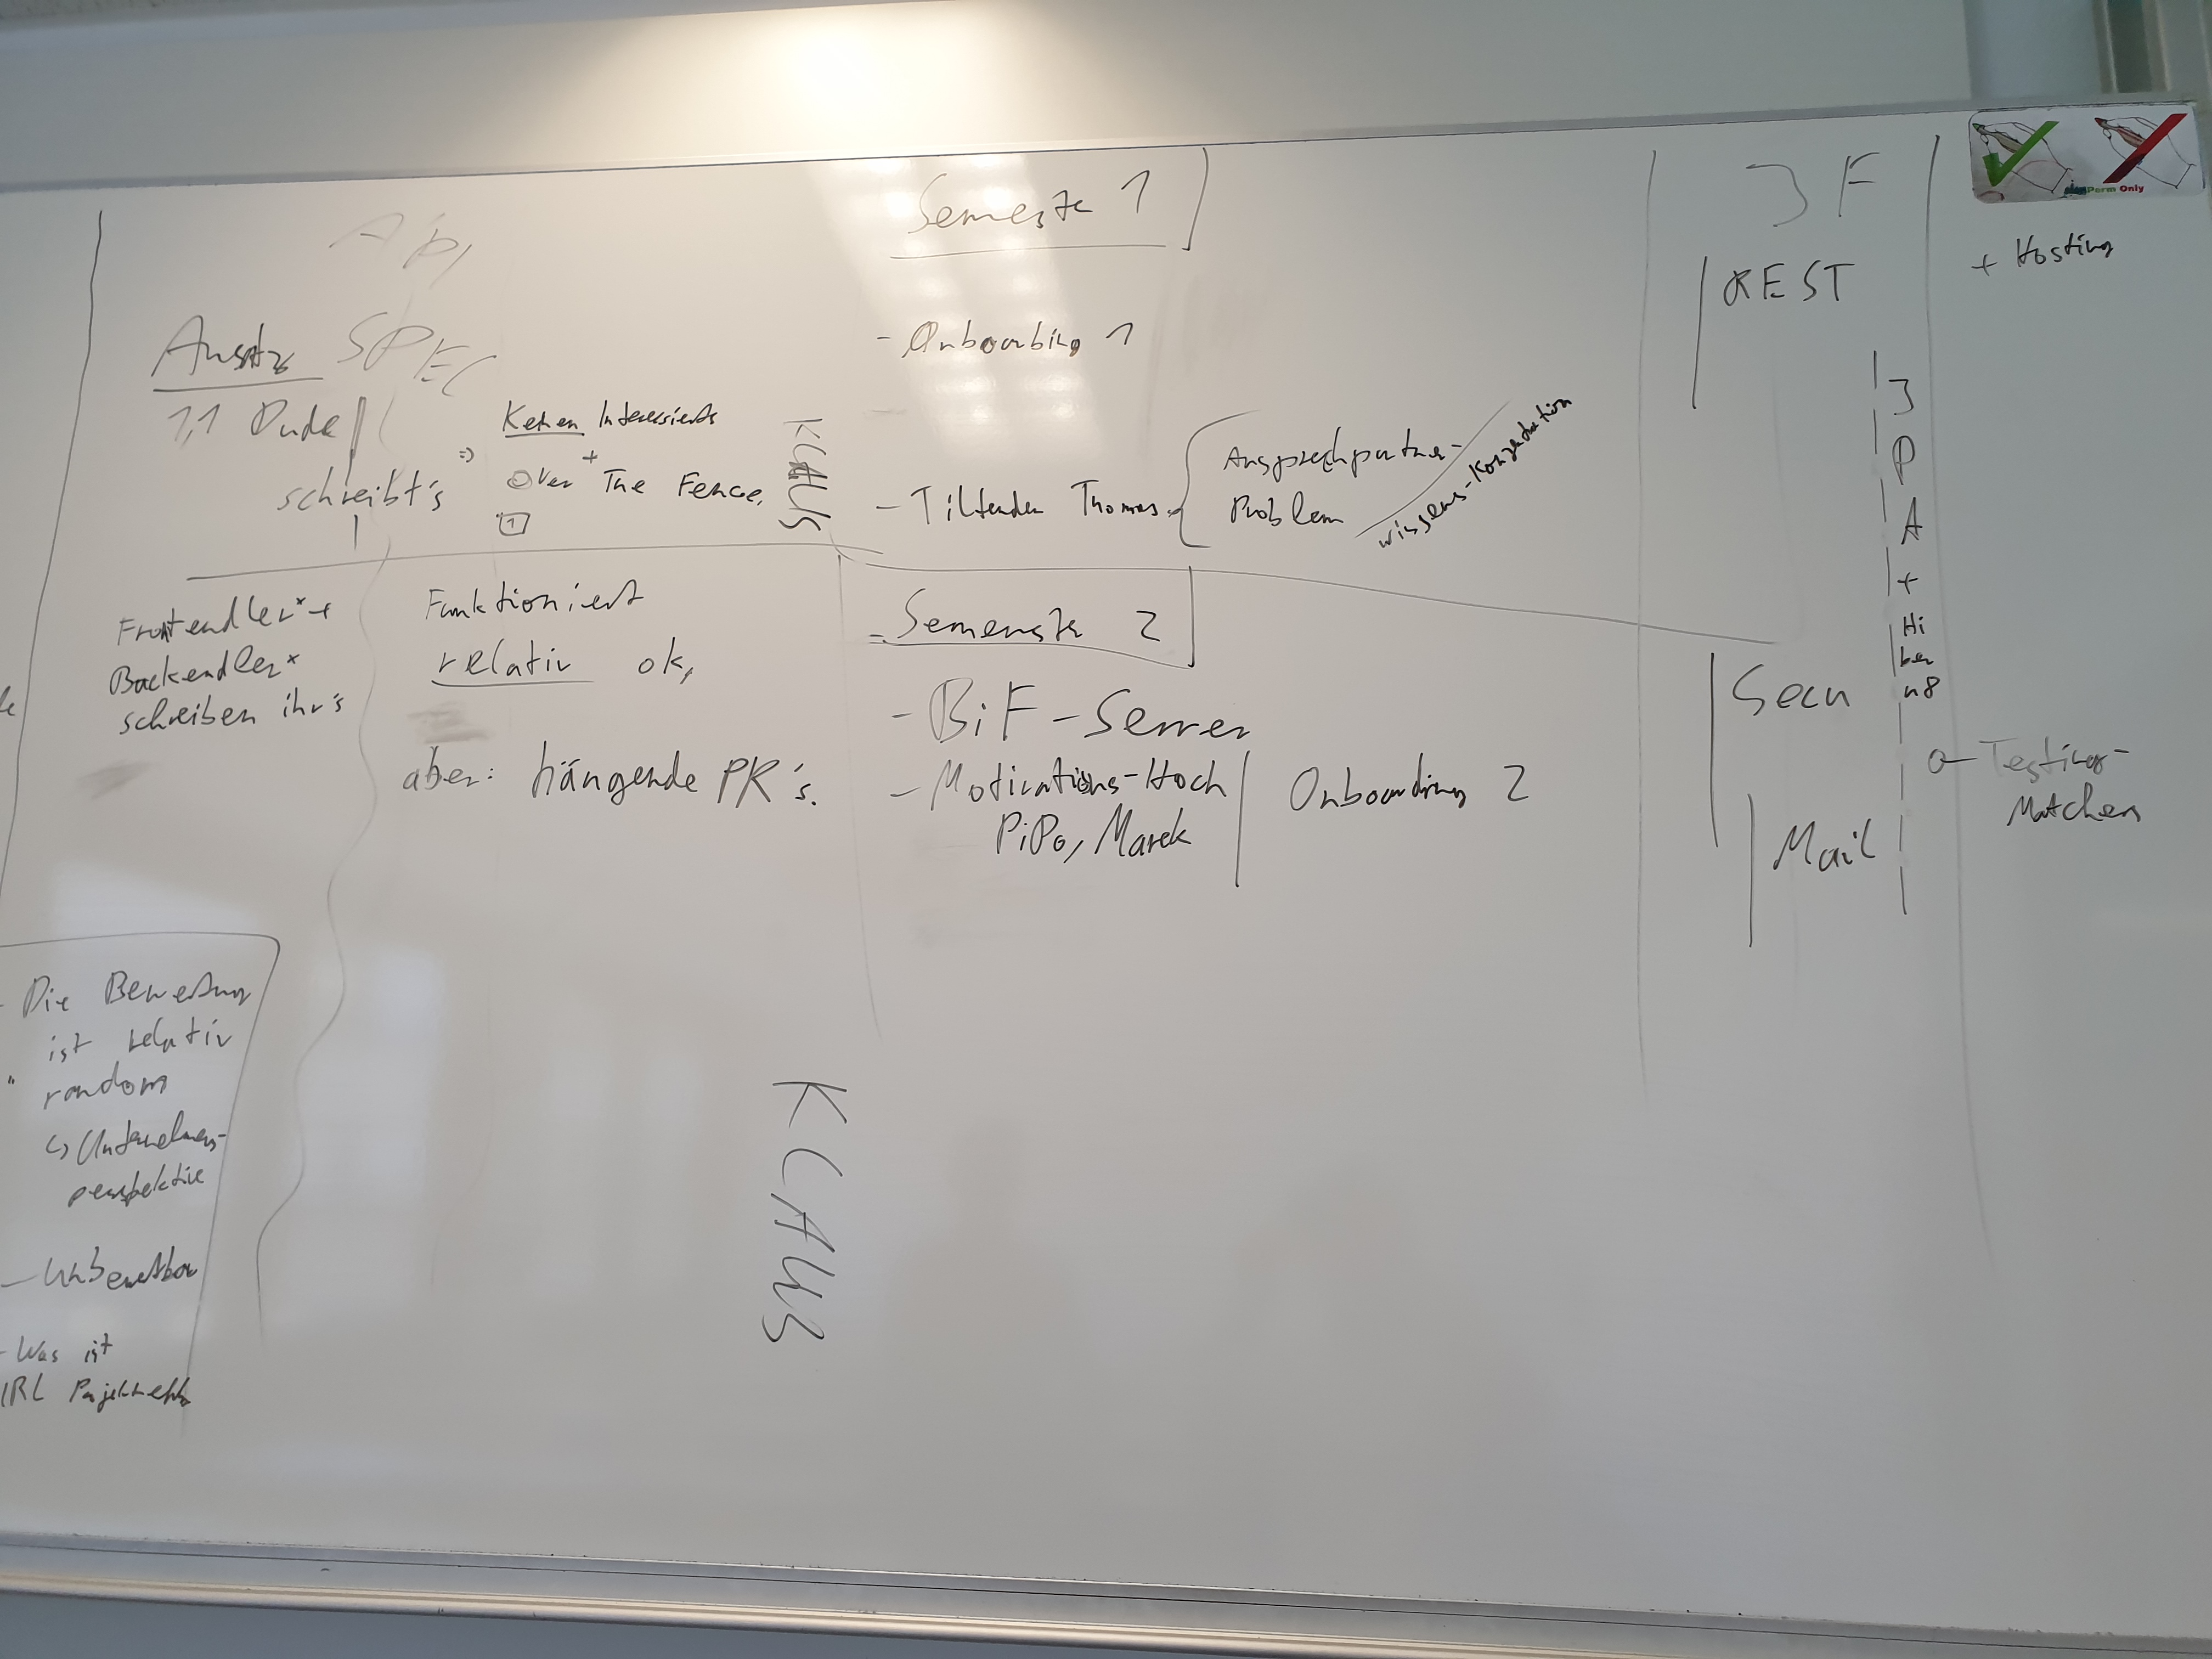 Api
SPEC
Ansatz
1,1 Dude
schreibt's
=> Keinen Interessierts
+
Over The Fence,
1
KCAUS
Frontendler* +
Backendler*
schreiben ihr's
Funktioniert
relativ ok,
aber: hängende PR's.
- Die Bewertung
ist relativ
random
↳ Unternehmens-
perspektive
- Unbewertbar
- Was ist
IRL
KCAUS
Semester 1
- Onboarding 1
- Tiltender Thomas
Ansprechpartner-
Problem
Wissens-Konzentration
= Semenster 2
- BiF-Server
- Motivations-Hoch
PiPo, Marek
Onboarding 2
JF
REST
Secu
Mail
JPA
+
Hi
ber
n8
+ Hosting
Testing-
Matchen
Perm Only